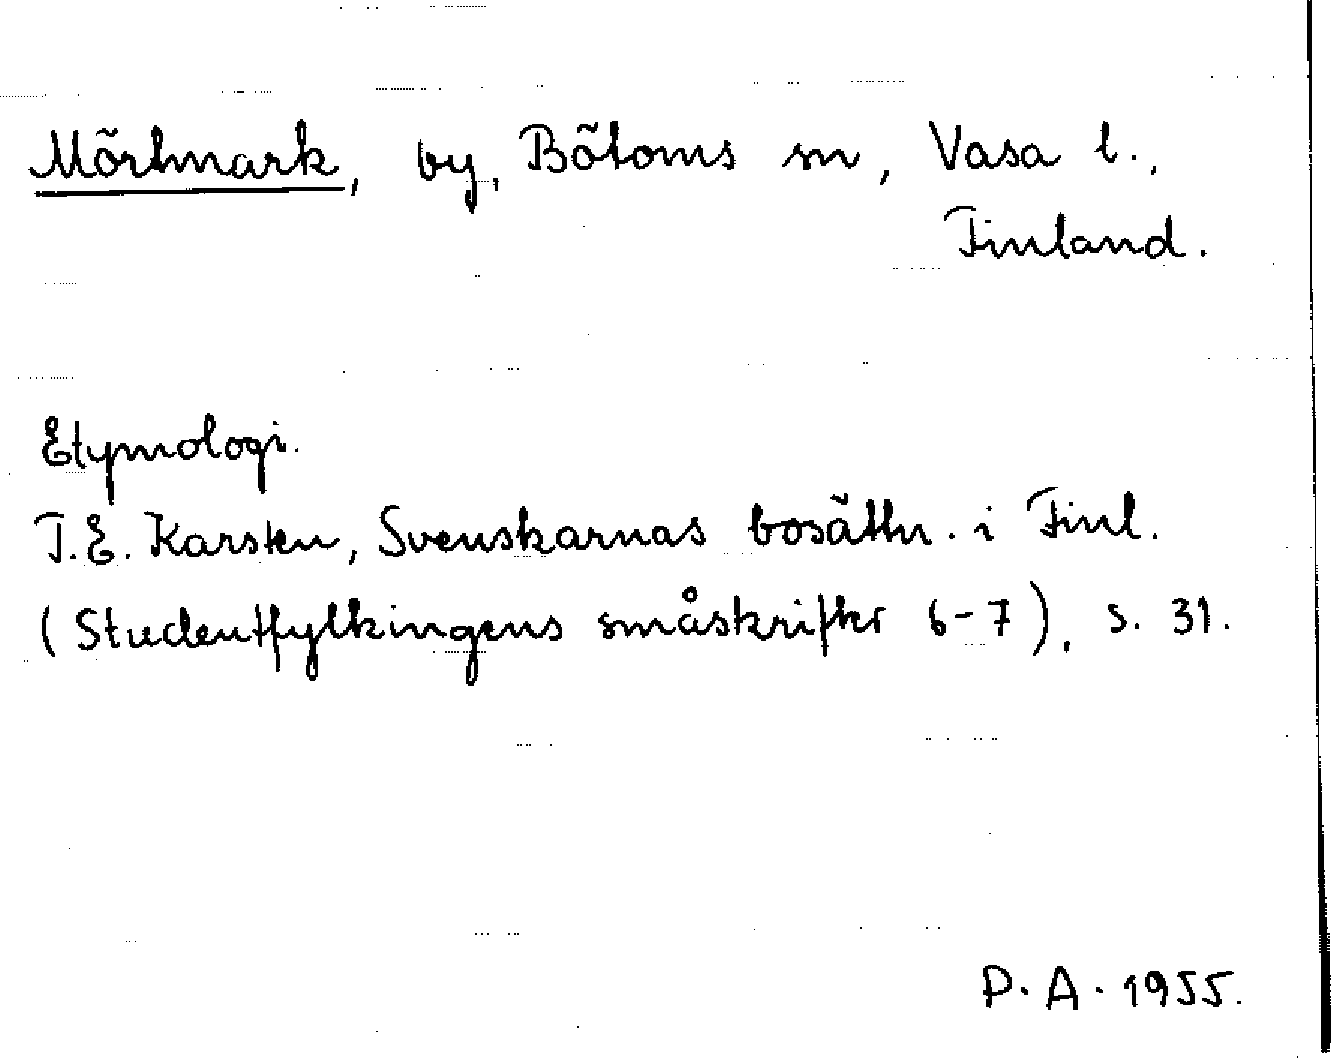 Mörtmark, by, Bötoms sn, Vasa l.,
Finland.
Etymologi.
T.E. Karsten, Svenskarnas bosättn. i Finl.
(Studentfylkingens småskrifter 6-7). s. 31.
P.A. 1955.